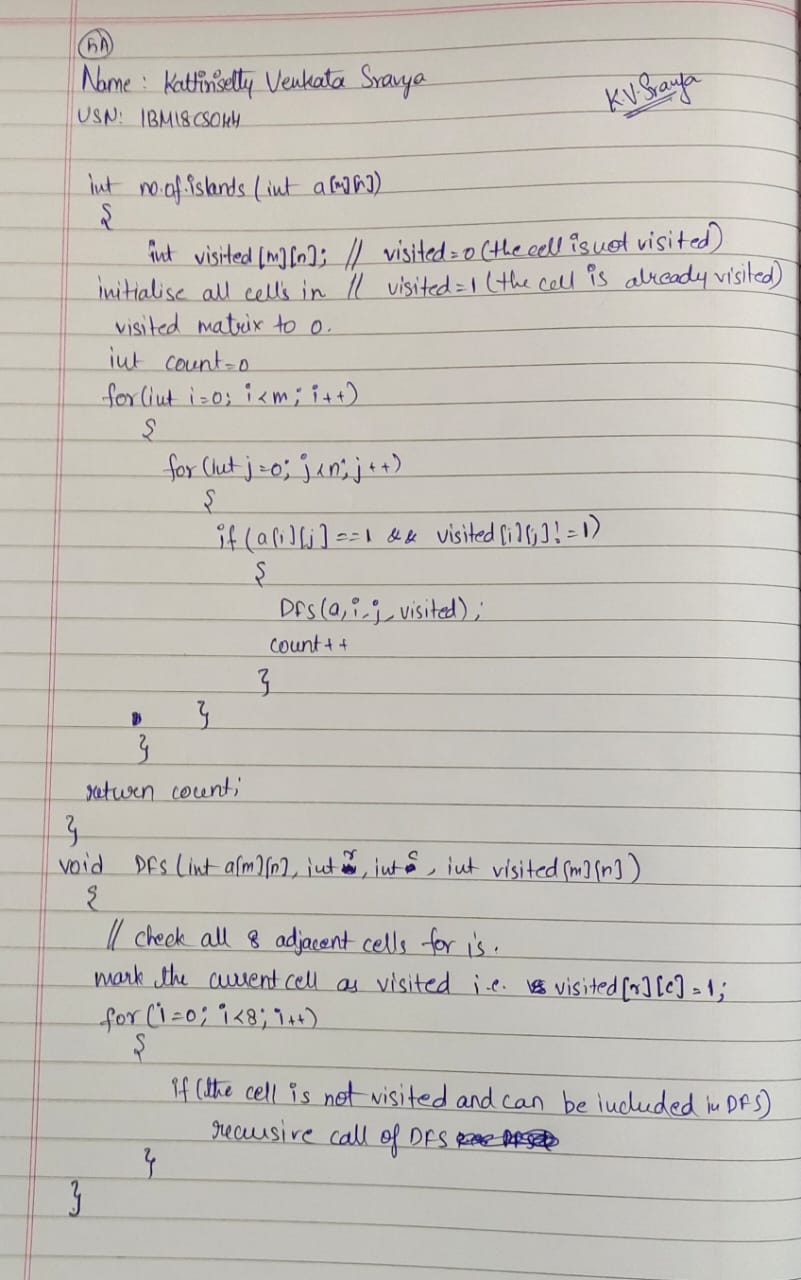 5A
Name : Kattiriselty Venkata Sravya
K.V.Sravya
USN: 1BM18CS044
int no.of.islands (int a[m][n])
{
int visited [m][n]; // visited=0 (the cell is not visited)
initialise all cells in // visited=1 (the cell is already visited)
visited matrix to 0.
int count=0
for(int i=0; i<m; i++)
{
for(int j=0; j<n; j++)
{
if (a[i][j]==1 && visited[i][j]!=1)
{
DFS(a,i,j,visited);
count++
}
}
}
return count;
}
void DFS (int a[m][n], int r, int c, int visited[m][n])
{
// check all 8 adjacent cells for 1s.
mark the current cell as visited i.e. visited[r][c]=1;
for(i=0; i<8; i++)
{
if (the cell is not visited and can be included in DFS)
recursive call of DFS
}
}